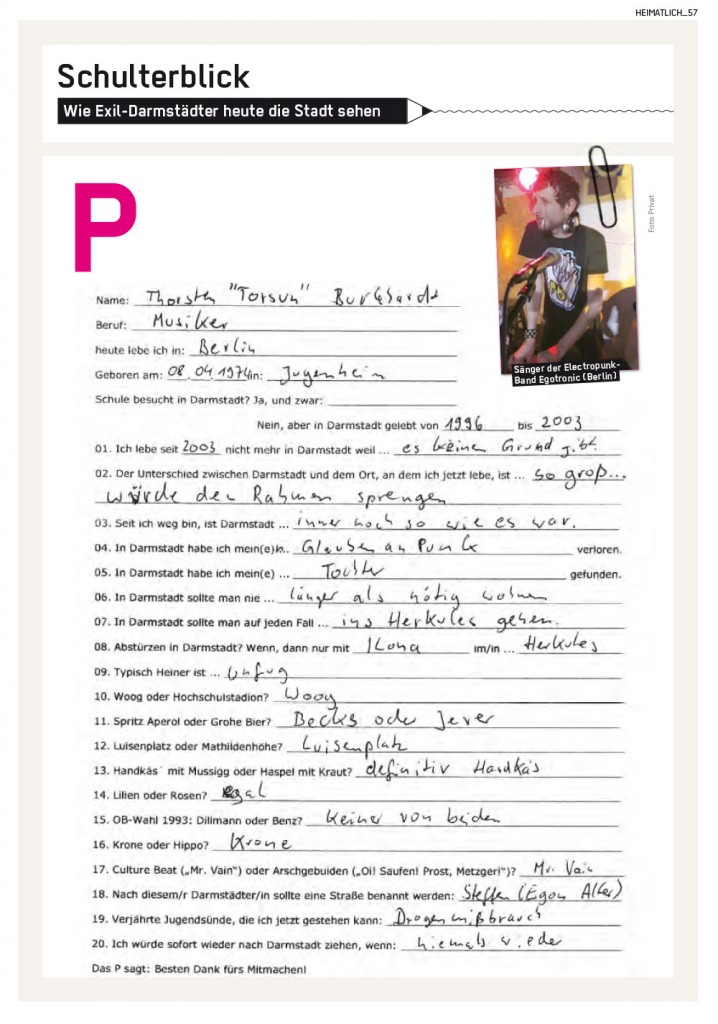 HEIMATLICH_57
Schulterblick
Wie Exil-Darmstädter heute die Stadt sehen
P
Foto: Privat
Sänger der Electropunk-
Band Egotronic (Berlin)
Name: Thorsten "Torsun" Burkhardt
Beruf: Musiker
heute lebe ich in: Berlin
Geboren am: 08.04.1974 in: Jugenheim
Schule besucht in Darmstadt? Ja, und zwar:
Nein, aber in Darmstadt gelebt von 1996 bis 2003
01. Ich lebe seit 2003 nicht mehr in Darmstadt weil ... es keinen Grund gibt.
02. Der Unterschied zwischen Darmstadt und dem Ort, an dem ich jetzt lebe, ist ... so groß...
würde den Rahmen sprengen
03. Seit ich weg bin, ist Darmstadt ... immer noch so wie es war.
04. In Darmstadt habe ich mein(e)n.. Glauben an Punk verloren.
05. In Darmstadt habe ich mein(e) ... Tochter gefunden.
06. In Darmstadt sollte man nie ... länger als nötig wohnen
07. In Darmstadt sollte man auf jeden Fall ... ins Herkules gehen.
08. Abstürzen in Darmstadt? Wenn, dann nur mit Ilona im/in ... Herkules
09. Typisch Heiner ist ... Unfug
10. Woog oder Hochschulstadion? Woog
11. Spritz Aperol oder Grohe Bier? Becks oder Jever
12. Luisenplatz oder Mathildenhöhe? Luisenplatz
13. Handkäs´ mit Mussigg oder Haspel mit Kraut? definitiv Handkäs
14. Lilien oder Rosen? egal
15. OB-Wahl 1993: Dillmann oder Benz? Keiner von beiden
16. Krone oder Hippo? Krone
17. Culture Beat („Mr. Vain“) oder Arschgebuiden („Oi! Saufen! Prost, Metzger!“)? Mr. Vain
18. Nach diesem/r Darmstädter/in sollte eine Straße benannt werden: Steffen (Egon Alter)
19. Verjährte Jugendsünde, die ich jetzt gestehen kann: Drogenmißbrauch
20. Ich würde sofort wieder nach Darmstadt ziehen, wenn: niemals wieder
Das P sagt: Besten Dank fürs Mitmachen!